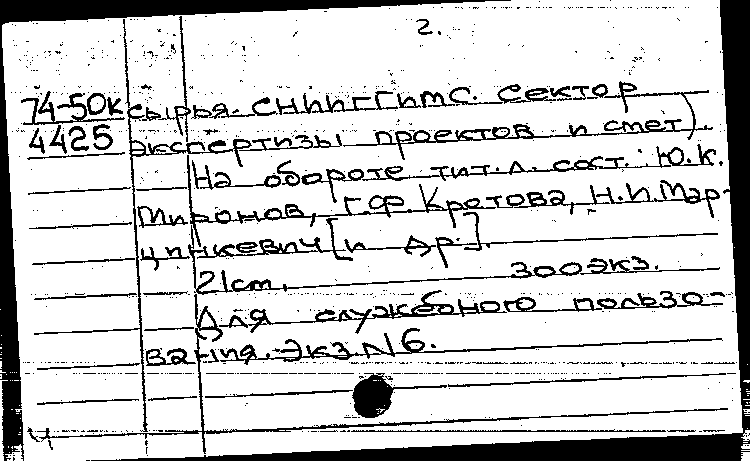 2.
74-50к сырья. СНИИГГИМС. Сектор
4425 экспертизы проектов и смет).
На обороте тит. л. сост.: Ю.К.
Миронов, Г.Ф. Кротова, Н.И. Мар-
цинкевич [и др.].
21 cm. 300 экз.
Для служебного пользо-
вания. Экз. N 6.
Ч